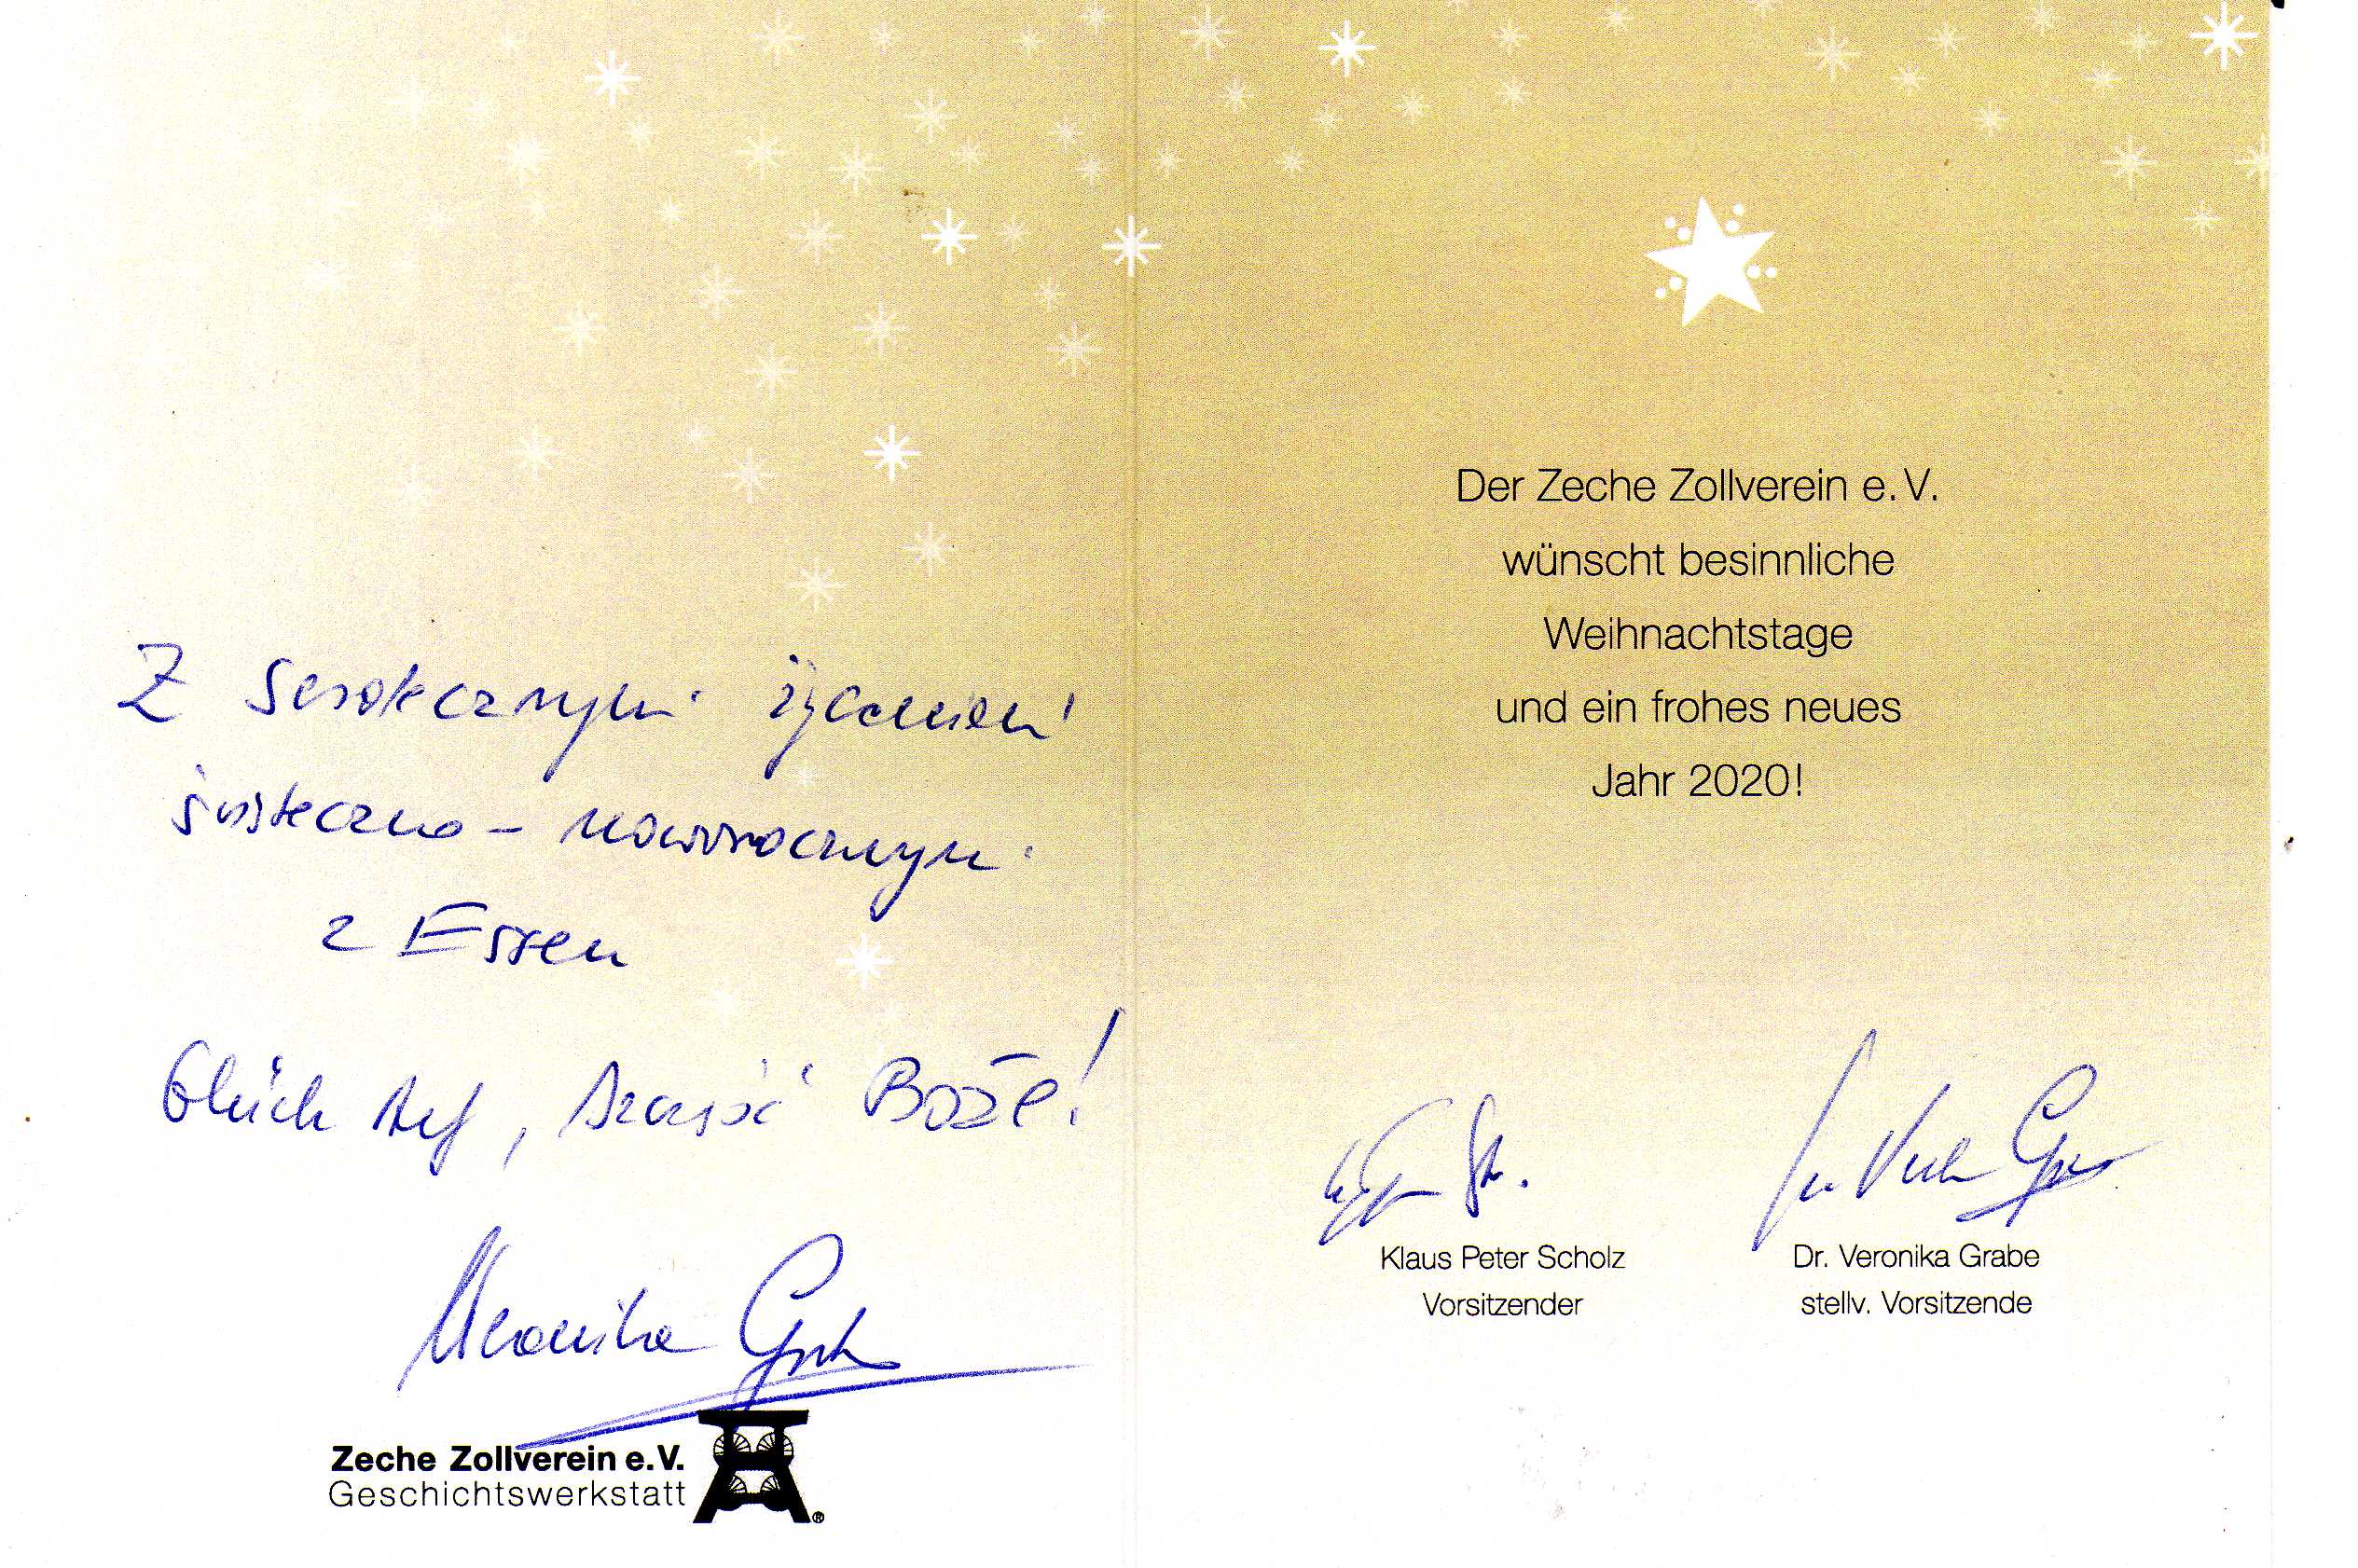 Z serdecznymi życzeniami
świąteczno - noworocznymi
z Essen
Glück Auf, Szczęść Boże!
Veronika Grabe
Zeche Zollverein e.V.
Geschichtswerkstatt
Der Zeche Zollverein e.V.
wünscht besinnliche
Weihnachtstage
und ein frohes neues
Jahr 2020!
Klaus Peter Scholz
Vorsitzender
Dr. Veronika Grabe
stellv. Vorsitzende